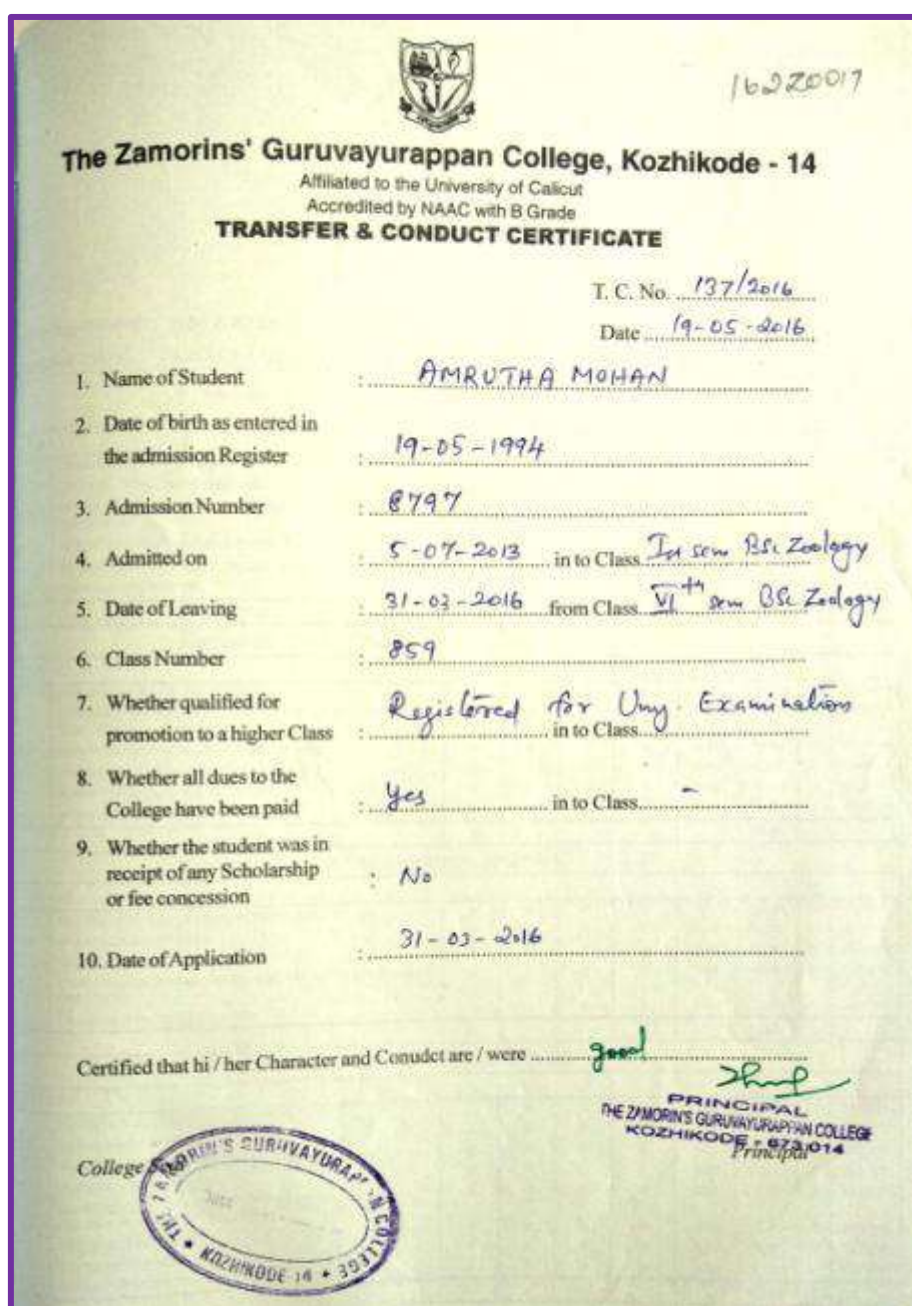 162Z0017
The Zamorins' Guruvayurappan College, Kozhikode - 14
Affiliated to the University of Calicut
Accredited by NAAC with B Grade
TRANSFER & CONDUCT CERTIFICATE
T. C. No. 137/2016
Date 19-05-2016
1. Name of Student : AMRUTHA MOHAN
2. Date of birth as entered in
the admission Register : 19-05-1994
3. Admission Number : 8797
4. Admitted on : 5-07-2013 in to Class sem BSc Zoology
5. Date of Leaving : 31-03-2016 from Class VIth sem BSc Zoology
6. Class Number : 859
7. Whether qualified for Registered for Uny. Examination
promotion to a higher Class : in to Class
8. Whether all dues to the
College have been paid : Yes in to Class -
9. Whether the student was in
receipt of any Scholarship : No
or fee concession
10. Date of Application : 31-03-2016
Certified that hi / her Character and Conudct are / were good
PRINCIPAL
THE ZAMORIN'S GURUVAYURAPPAN COLLEGE
KOZHIKODE - 673 014
Principal
College
THE ZAMORIN'S GURUVAYURAPPAN COLLEGE
KOZHIKODE 14